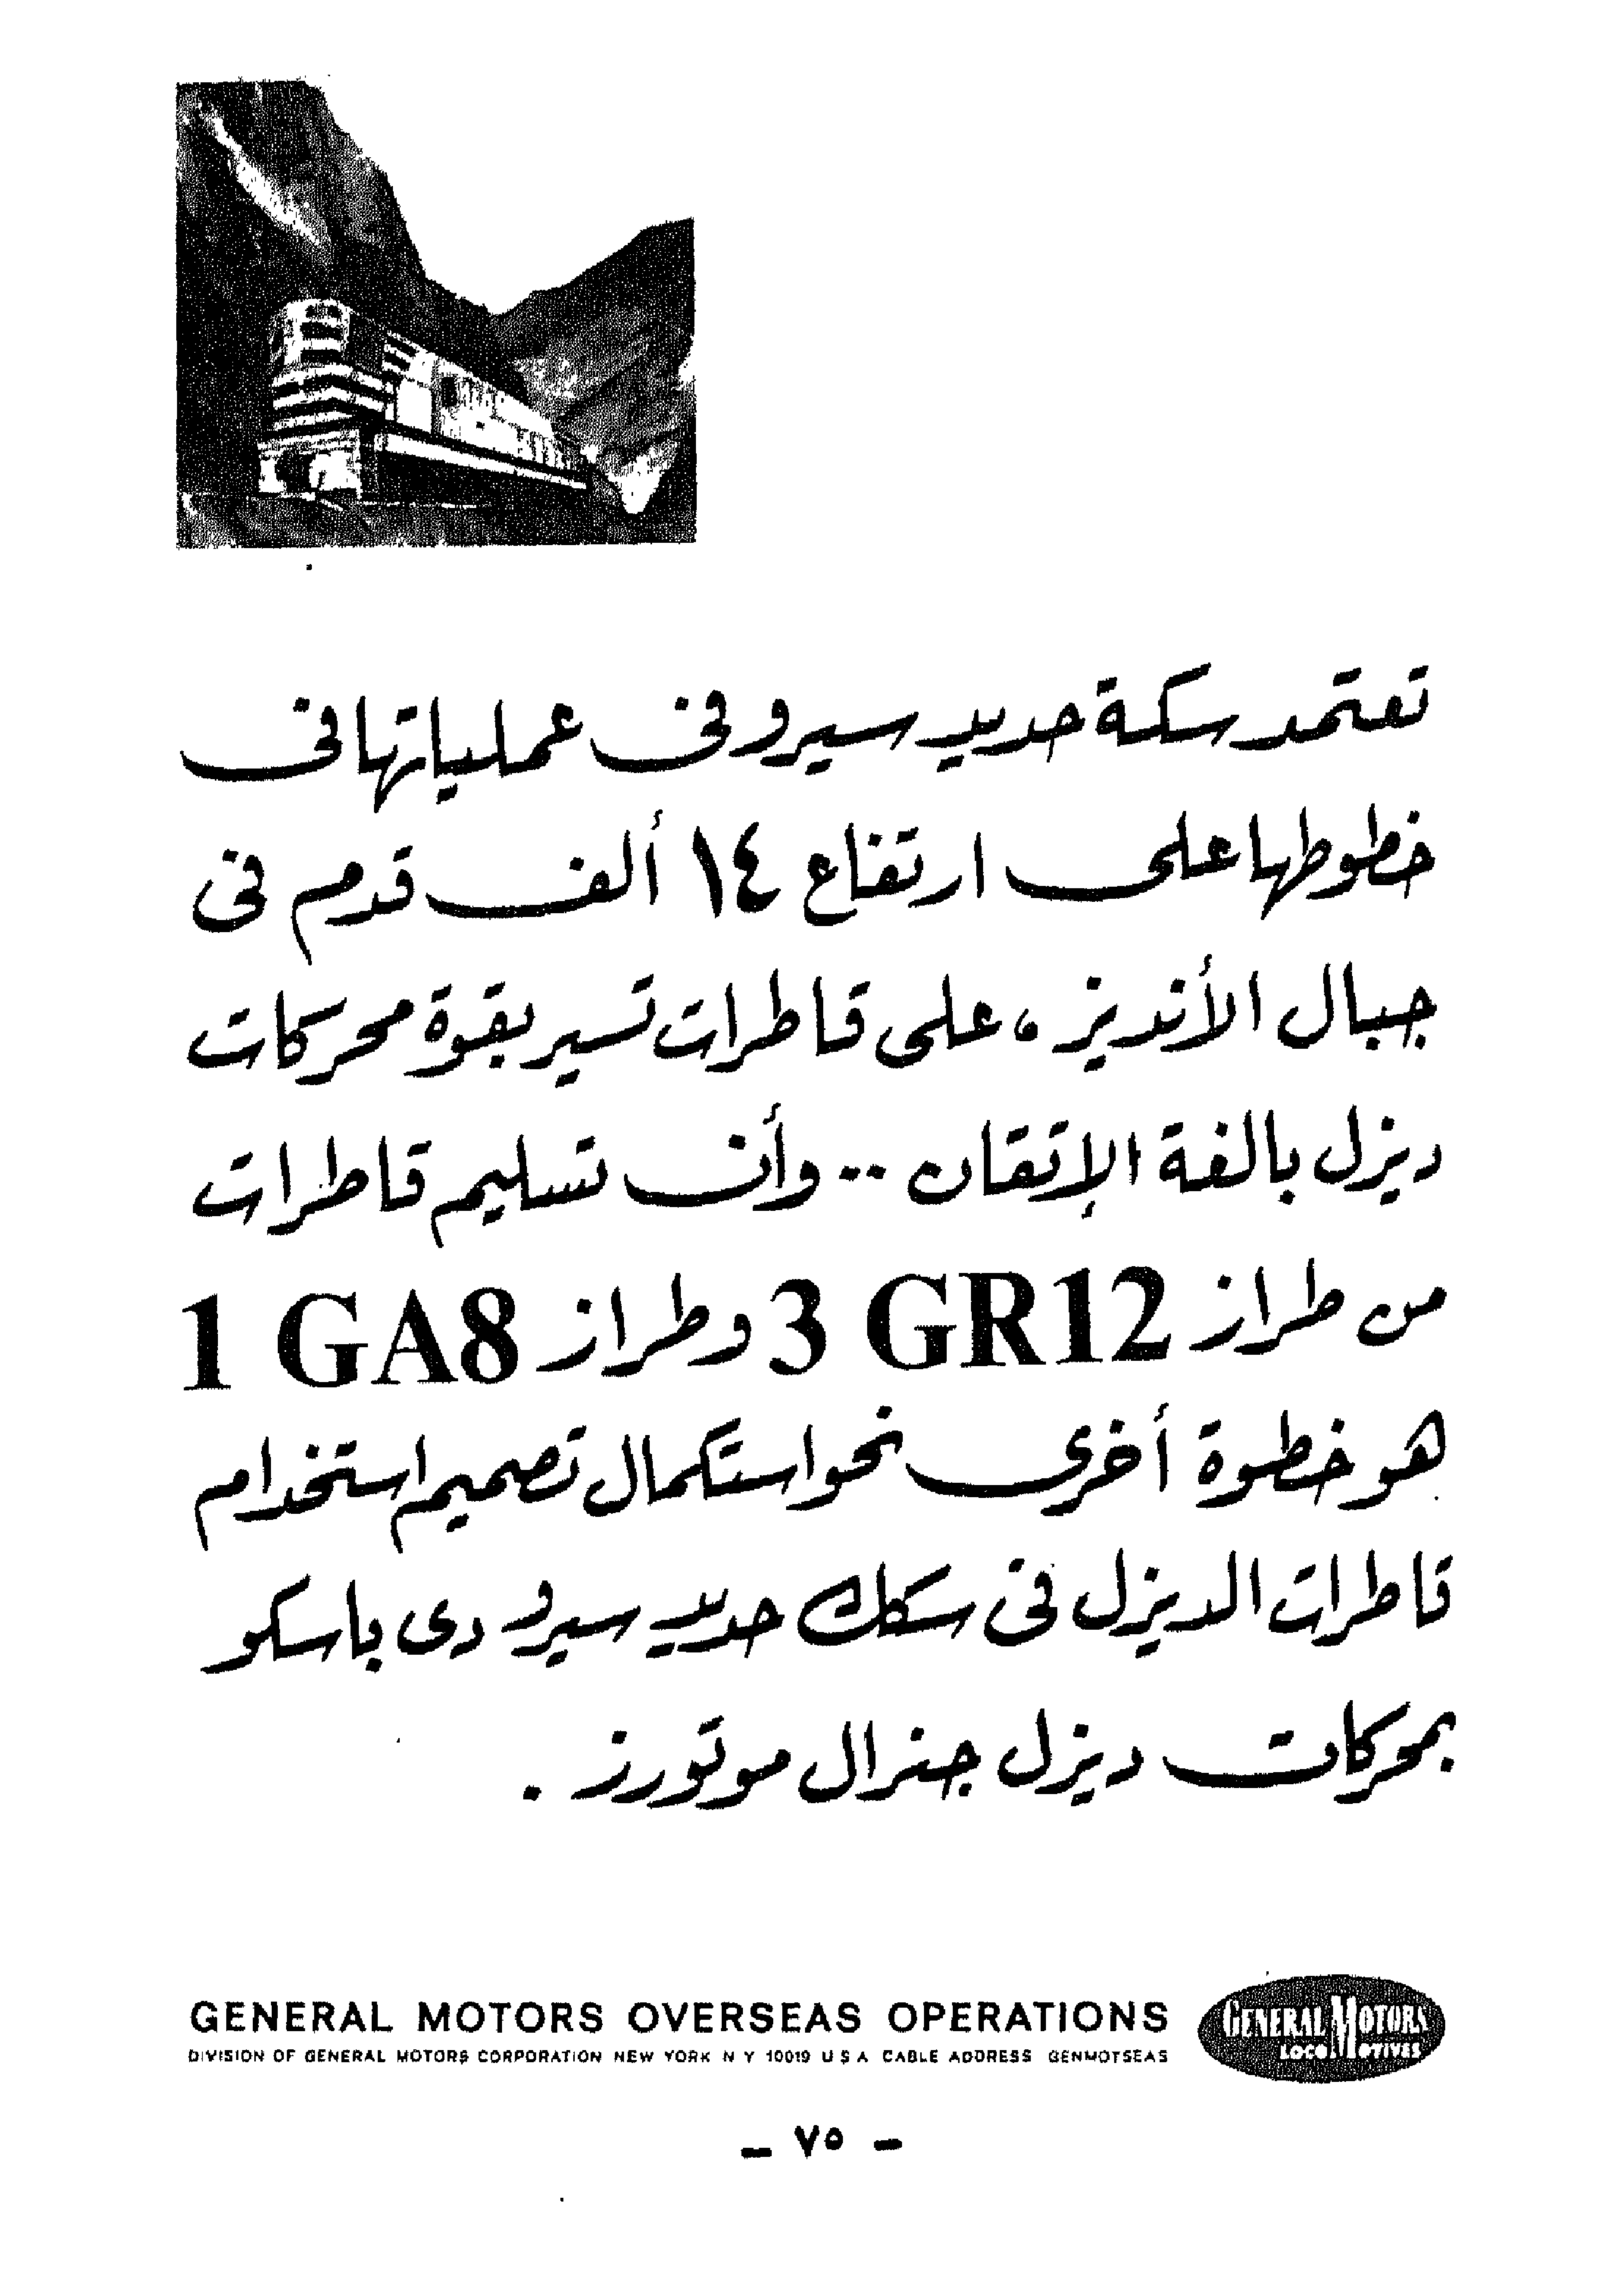 تعتمد سكة حديد سيرو فى عملياتها فى
خطوطها على ارتفاع ١٤ ألف قدم فى
جبال الأنديز ، على قاطرات تسير بقوة محركات
ديزل بالغة الإتقان ٠٠ وأن تسليم قاطرات
من طراز 3 GR12 وطراز 1 GA8
هو خطوة أخرى نحو استكمال تصميم استخدام
قاطرات الديزل فى سكك حديد سيرو دى باسكو
بمحركات ديزل جنرال موتورز .
GENERAL MOTORS OVERSEAS OPERATIONS
DIVISION OF GENERAL MOTORS CORPORATION NEW YORK N Y 10019 U S A CABLE ADDRESS GENMOTSEAS
GENERAL MOTORS
LOCOMOTIVES
- ٧٥ -